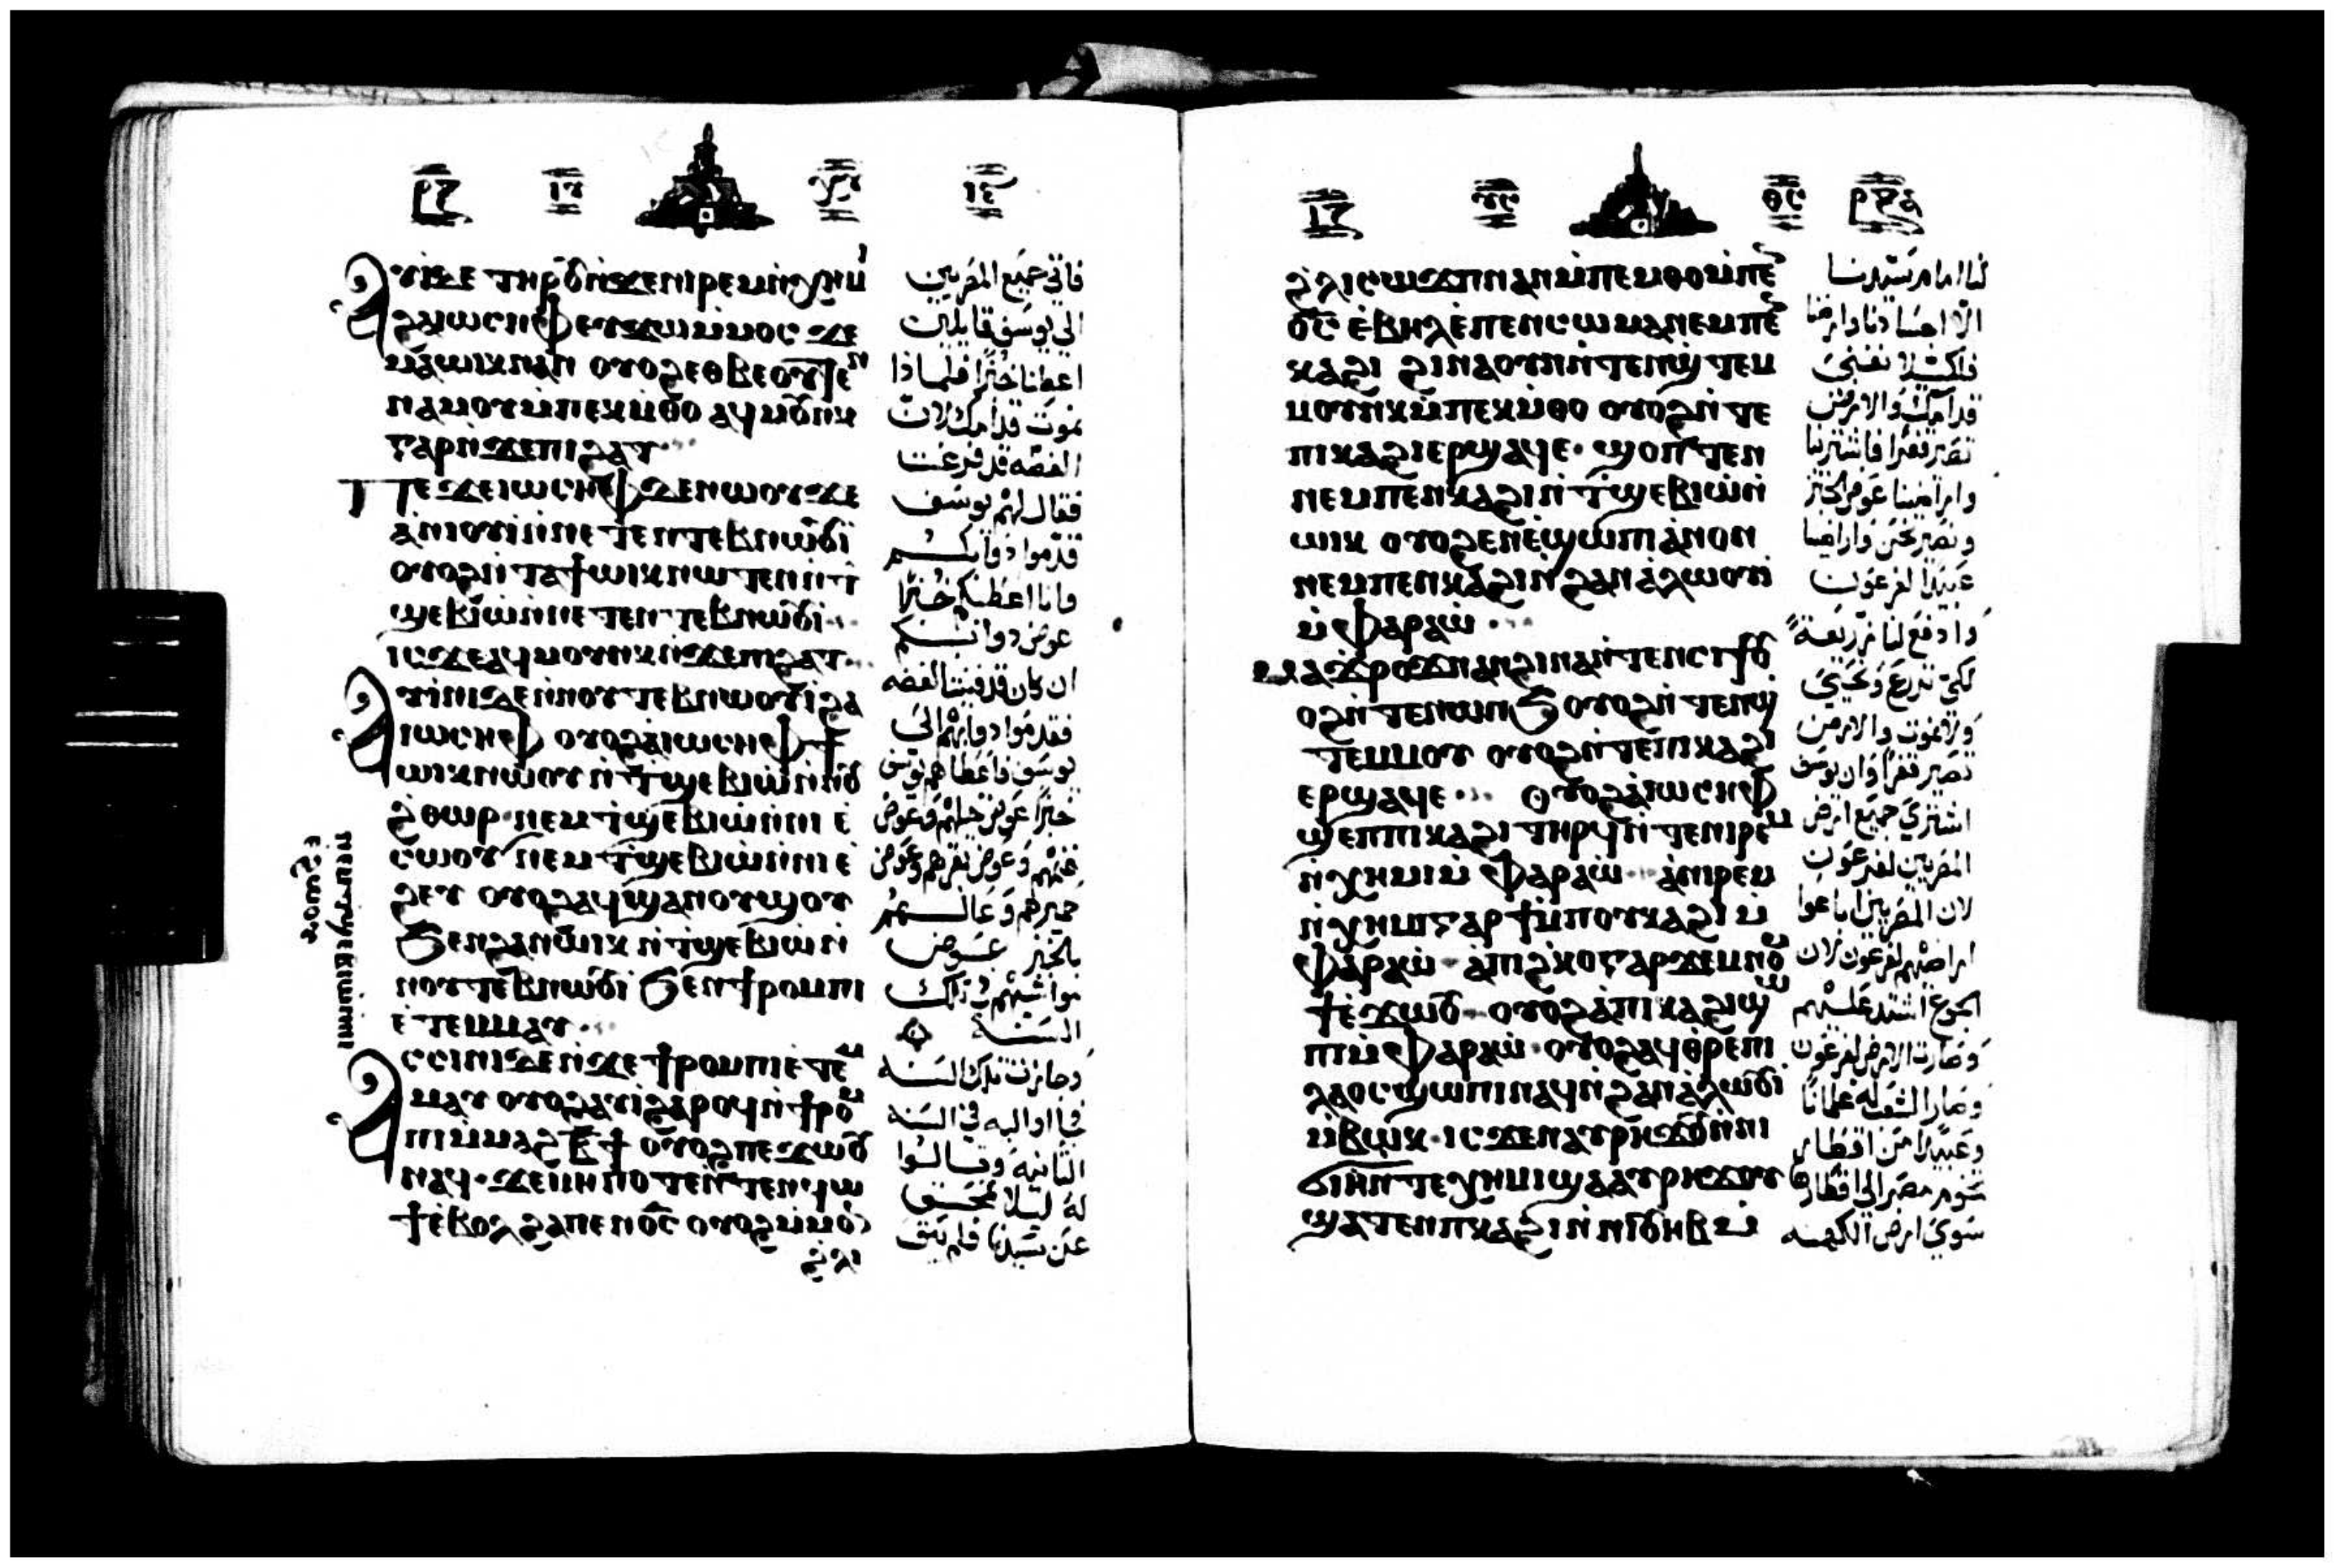 ⲁⲩⲓ ⲇⲉ ⲧⲏⲣⲟⲩ ⲛ̀ϫⲉ ⲛⲓⲣⲉⲙⲛ̀ⲭⲏⲙⲓ
ϩⲁ ⲓⲱⲥⲏⲫ ⲉⲩϫⲱ ⲙ̀ⲙⲟⲥ ϫⲉ
ⲙⲁ ⲱⲓⲕ ⲛⲁⲛ ⲟⲩⲟϩ ⲉⲑⲃⲉ ⲟⲩ ⲧⲉⲛ
ⲛⲁⲙⲟⲩ ⲙ̀ⲡⲉⲕⲙ̀ⲑⲟ ⲁϥⲙⲟⲩⲛⲕ
ⲅⲁⲣ ⲛ̀ϫⲉ ⲡⲓϩⲁⲧ
ⲡⲉϫⲉ ⲓⲱⲥⲏⲫ ϫⲉ ⲛⲱⲟⲩ ϫⲉ
ⲁⲛⲓⲟⲩⲓ̀ ⲛ̀ⲛⲉⲧⲉⲛⲧⲉⲃⲛⲱⲟⲩⲓ
ⲟⲩⲟϩ ⲛ̀ⲧⲁϯ ⲱⲓⲕ ⲛⲱⲧⲉⲛ ⲛ̀ⲧ̀
ϣⲉⲃⲓⲱ̀ ⲛ̀ⲛⲉⲧⲉⲛⲧⲉⲃⲛⲱⲟⲩⲓ
ⲓⲥϫⲉ ⲁϥⲙⲟⲩⲛⲕ ⲛ̀ϫⲉ ⲡⲓϩⲁⲧ
ⲁⲩⲓⲛⲓ ⲇⲉ ⲛ̀ⲛⲟⲩⲧⲉⲃⲛⲱⲟⲩⲓ̀ ϩⲁ
ⲓⲱⲥⲏⲫ ⲟⲩⲟϩ ⲁ̀ ⲓⲱⲥⲏⲫ ϯ
ⲱⲓⲕ ⲛⲱⲟⲩ ⲛ̀ⲧ̀ϣⲉⲃⲓⲱ̀ ⲛ̀ⲛⲟⲩ
ϩ̀ⲑⲱⲣ ⲛⲉⲙ ⲧ̀ϣⲉⲃⲓⲱ̀ ⲛ̀ⲛⲓⲉ̀
ⲥⲱⲟⲩ ⲛⲉⲙ ⲧ̀ϣⲉⲃⲓⲱ̀ ⲛ̀ⲛⲓⲉ̀
ϩⲉⲩ ⲟⲩⲟϩ ⲁϥϣⲁⲛⲟⲩϣⲟⲩ
ϧⲉⲛ ϩⲁⲛⲱⲓⲕ ⲛ̀ⲧ̀ϣⲉⲃⲓⲱ̀ ⲛ̀
ⲛⲟⲩⲧⲉⲃⲛⲱⲟⲩⲓ ϧⲉⲛ ϯⲣⲟⲙⲡⲓ
ⲉ̀ⲧⲉⲙⲙⲁⲩ
ⲁⲥⲥⲓⲛⲓ ⲇⲉ ⲛ̀ϫⲉ ϯⲣⲟⲙⲡⲓ ⲉ̀ⲧⲉⲙ
ⲙⲁⲩ ⲟⲩⲟϩ ⲁⲩⲓ̀ ϩⲁⲣⲟϥ ⲛ̀ϯⲣⲟⲙ
ⲡⲓ ⲙ̀ⲙⲁϩⲃ̅ϯ ⲟⲩⲟϩ ⲡⲉϫⲱⲟⲩ
ⲛⲁϥ ϫⲉ ⲙⲏⲡⲟⲧⲉ ⲛ̀ⲧⲉⲛϥⲱ
ϯ ⲉ̀ⲃⲟⲗϩⲁ ⲡⲉⲛⲟ̅ⲥ̅ ⲟⲩⲟϩ ⲙ̀ⲙⲟⲛ
ϩ̀ⲗⲓ
ⲛⲉⲙ ⲧ̀ϣⲉⲃⲓⲱ ⲛ̀ⲛⲓ
ⲉϩⲱⲟⲩ
فاتي جميع المصريين
الي يوسف قايلين
اعطنا خبزًا فلماذا
نموت قدامك لان
الفضه قد فرغت
فقال لهم يوسف
قدموا دوابكم
وانا اعطيكم خبزًا
عوض دوابكم
ان كان قد فنيت الفضه
فقدموا دوابهم الي
يوسف فاعطاهم يوسف
خبزًا عوض خيلهم وعوض
غنمهم وعوض بقرهم وعوض
حميرهم وعالهم
بالخبز عوض
مواشيهم في تلك
السنة
وجازت تلك السنه
فجااوا اليه في السنه
الثانيه وقالوا
له ليلا نمحق
عن سيدنا فلم يبق
ϩ̀ⲗⲓ ⲥⲱϫⲡ ⲛⲁⲛ ⲙ̀ⲡⲉⲙⲑⲟ ⲙ̀ⲡⲉⲛ
ⲟ̅ⲥ̅ ⲉ̀ⲃⲏⲗ ⲉ̀ⲡⲉⲛⲥⲱⲙⲁ ⲛⲉⲙ ⲡⲉⲛ
ⲕⲁϩⲓ ϩⲓⲛⲁ ⲟⲩⲛ ⲛ̀ⲧⲉⲛϣ̀ⲧⲉⲙ
ⲙⲟⲩⲛⲕ ⲙ̀ⲡⲉⲕⲙ̀ⲑⲟ ⲟⲩⲟϩ ⲛ̀ⲧⲉ
ⲡⲓⲕⲁϩⲓ ⲉⲣϣⲁϥⲉ ϣⲟⲡⲧⲉⲛ
ⲛⲉⲙ ⲡⲉⲛⲕⲁϩⲓ ⲛ̀ⲧ̀ϣⲉⲃⲓⲱ̀ ⲛ̀
ⲱⲓⲕ ⲟⲩⲟϩ ⲉⲛⲉ̀ϣⲱⲡⲓ ⲁ̀ⲛⲟⲛ
ⲛⲉⲙ ⲡⲉⲛⲕⲁϩⲓ ⲛ̀ϩⲁⲛⲁ̀ⲗⲱⲟⲩⲓ̀
ⲙ̀ⲫⲁⲣⲁⲱ̀
ⲙⲁ ϫⲣⲟϫ ⲛⲁⲛ ϩⲓⲛⲁ ⲛ̀ⲧⲉⲛⲥⲓϯ ⲟⲩ
ⲟϩ ⲛ̀ⲧⲉⲛⲱⲛϧ ⲟⲩⲟϩ ⲛ̀ⲧⲉⲛϣ̀
ⲧⲉⲙⲙⲟⲩ ⲟⲩⲟϩ ⲛ̀ⲧⲉⲡⲓⲕⲁϩⲓ
ⲉⲣϣⲁϥⲉ ⲟⲩⲟϩ ⲁ̀ ⲓⲱⲥⲏⲫ
ϣⲉⲡ ⲡⲓⲕⲁϩⲓ ⲧⲏⲣϥ ⲛ̀ⲧⲉ ⲛⲓⲣⲉⲙ
ⲛ̀ⲭⲏⲙⲓ ⲙ̀ⲫⲁⲣⲁⲱ̀ ⲁ̀ ⲛⲓⲣⲉⲙ
ⲛ̀ⲭⲏⲙⲓ ⲅⲁⲣ ϯ ⲙ̀ⲡⲟⲩⲕⲁϩⲓ ⲙ̀
ⲫⲁⲣⲁⲱ̀ ⲁ̀ ⲡⲓϩ̀ⲕⲟ ⲅⲁⲣ ϫⲉⲙⲛⲟⲙ
ϯ ⲉ̀ϫⲱⲟⲩ ⲟⲩⲟϩ ⲁ̀ ⲡⲓⲕⲁϩⲓ ϣⲱ
ⲡⲓ ⲙ̀ⲫⲁⲣⲁⲱ̀ ⲟⲩⲟϩ ⲁϥⲑ̀ⲣⲉ ⲡⲓ
ⲗⲁⲟⲥ ϣⲱⲡⲓ ⲛⲁϥ ⲛ̀ϩⲁⲛⲁ̀ⲗⲱⲟⲩⲓ
ⲙ̀ⲃⲱⲕ ⲓⲥϫⲉⲛ ⲁⲩⲣⲏϫⲟⲩ ⲛ̀ⲛⲓ
ϭⲓⲏ ⲛ̀ⲧⲉ ⲭⲏⲙⲓ ϣⲁ ⲁⲩⲣⲏϫⲟⲩ
ϣⲁⲧⲉⲛ ⲡ̀ⲕⲁϩⲓ ⲛ̀ⲛⲓⲟⲩⲏⲃ ⲙ̀
لنا امام سيدنا
الا اجسادنا وارضنا
فلكيلا نفني
قدامك والارض
تصير قفرًا فاشترنا
وارضنا عوض الخبز
ونصير نحن واراضينا
عبيدًا لفرعون
وادفع لنا زريعة
لكي نزرع ونحيي
ولا نموت والارض
تصير قفرًا وان يوسف
اشتري جميع ارض
المصريين لفرعون
لان المصريين اباعوا
اراضيهم لفرعون لان
الجوع اشتد عليهم
وصارت الارض لفرعون
وصار الشعب له غلمانًا
وعبيدًا من اقطار
تخوم مصر الي اقطارها
سوي ارض الكهنه